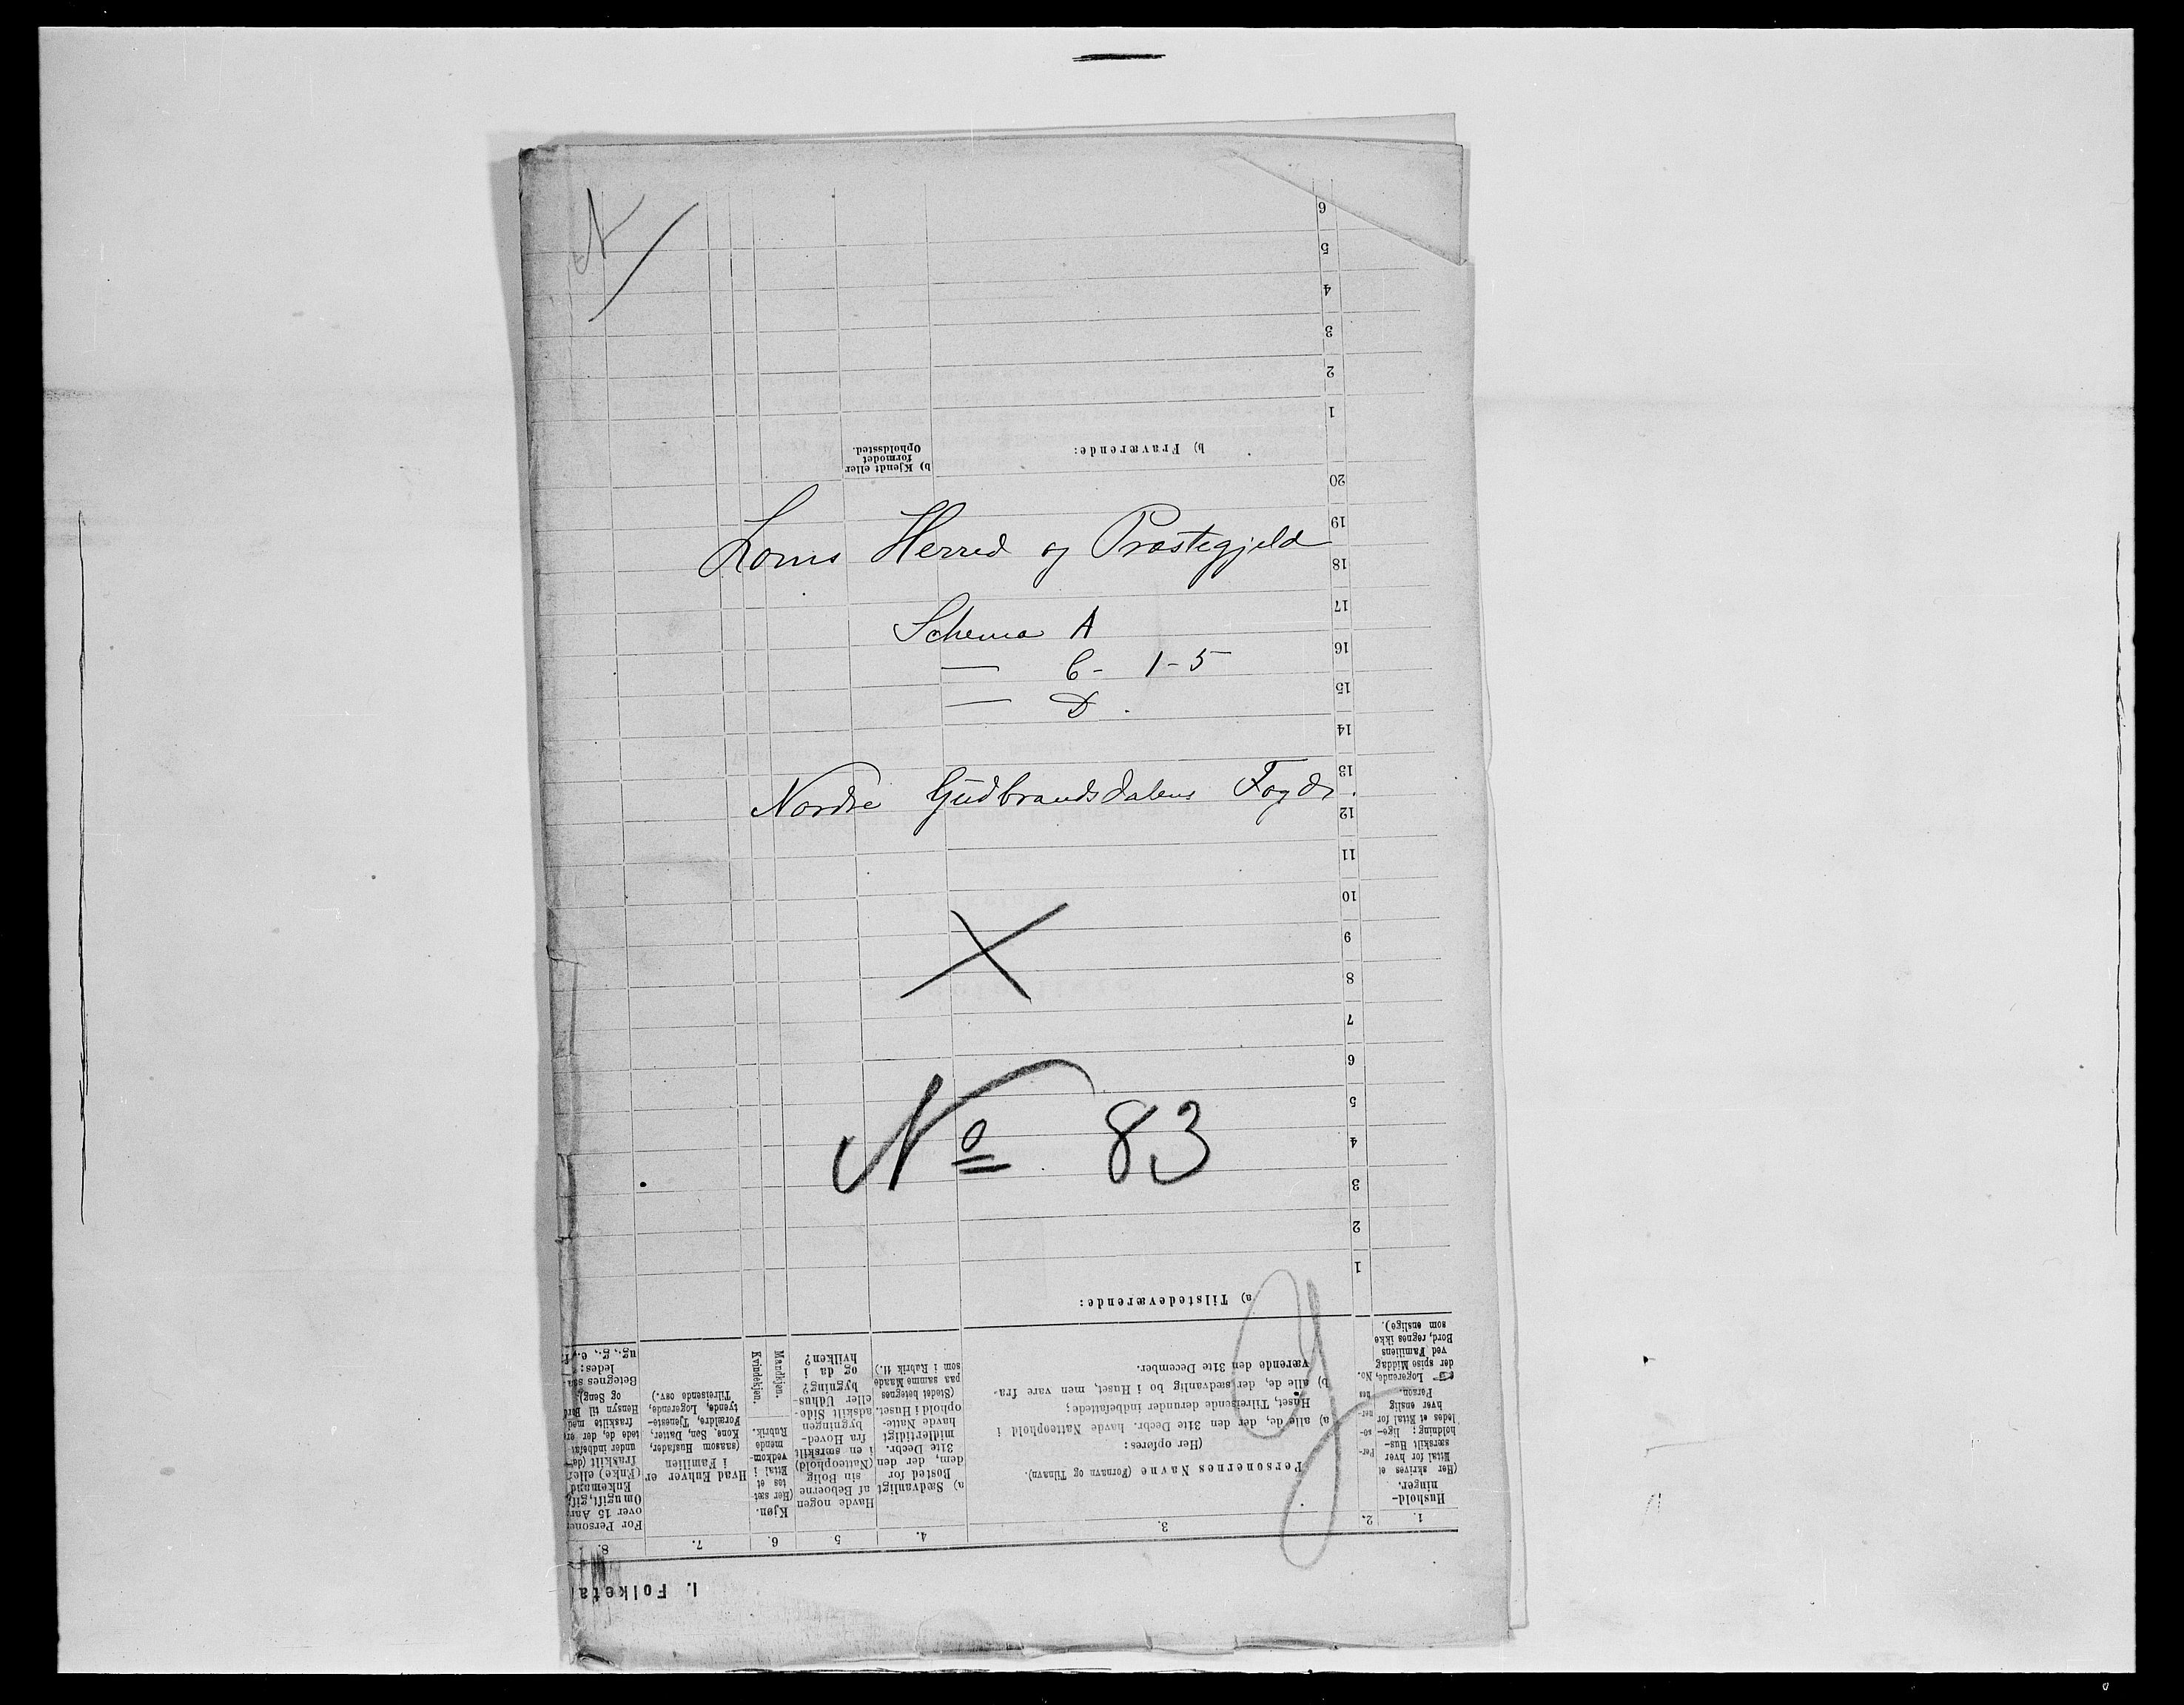 N
Loms Herred og Præstegjeld
Schema A
— C- 1-5
— D.
Nordre Gudbrandsdalens Fogdr.
X
No 83
1. Folketal
1.
2.
3.
4.
5
6.
7.
8.
Hushold-
ninger.
(Her skrives et
Ettal for hver
særskilt Hus-
holdning; lige-
ledes et Ettal for
hver enslig
Person.
Logerende,
der spise Middag
ved Familiens
Bord, regnes ikke
som enslige).
Personernes No.
Personernes Navne (Fornavn og Tilnavn).
(Her opføres:
a) alle de, der den 31te Decbr. havde Natteophold i
Huset, Tilreisende derunder indbefattede;
b) alle de, der sædvanlig bo i Huset, men vare fra-
værende den 31te December.
a) Sædvanligt
Bosted for
dem, der den
31te Decbr.
midlertidigt
havde Natte-
ophold i Huset.
(Stedet betegnes
paa samme Maade
som i Rubrik 11.)
Havde nogen
af Beboerne
sin Bolig
(Natteophold)
i en særskilt
fra Hoved-
bygningen
adskilt Side-
eller Udhus-
bygning?
og da i
hvilken?
Kjøn.
(Her sæt-
tes et
Ettal i
vedkom-
mende
Rubrik.
Mandkjøn.
Kvindekjøn.
Hvad Enhver er
i Familien
(saasom Husfader,
Kone, Søn, Datter,
Forældre, Tjeneste-
tyende, Logerende,
Tilreisende osv.)
For Personer
over 15 Aar:
Om ugift, gift,
Enkemand
(Enke) eller
fraskilt (der-
under indbefat-
tede de, der ere
fraskilte med
Hensyn til Bord
og Seng).
Betegnes saa-
ledes:
ug., g., e., f.
a) Tilstedeværende:
1
2
3
4
5
6
7
8
9
10
11
12
13
14
15
16
17
18
19
20
b) Fraværende:
b) Kjendt eller
formodet
Opholdssted.
1
2
3
4
5
6